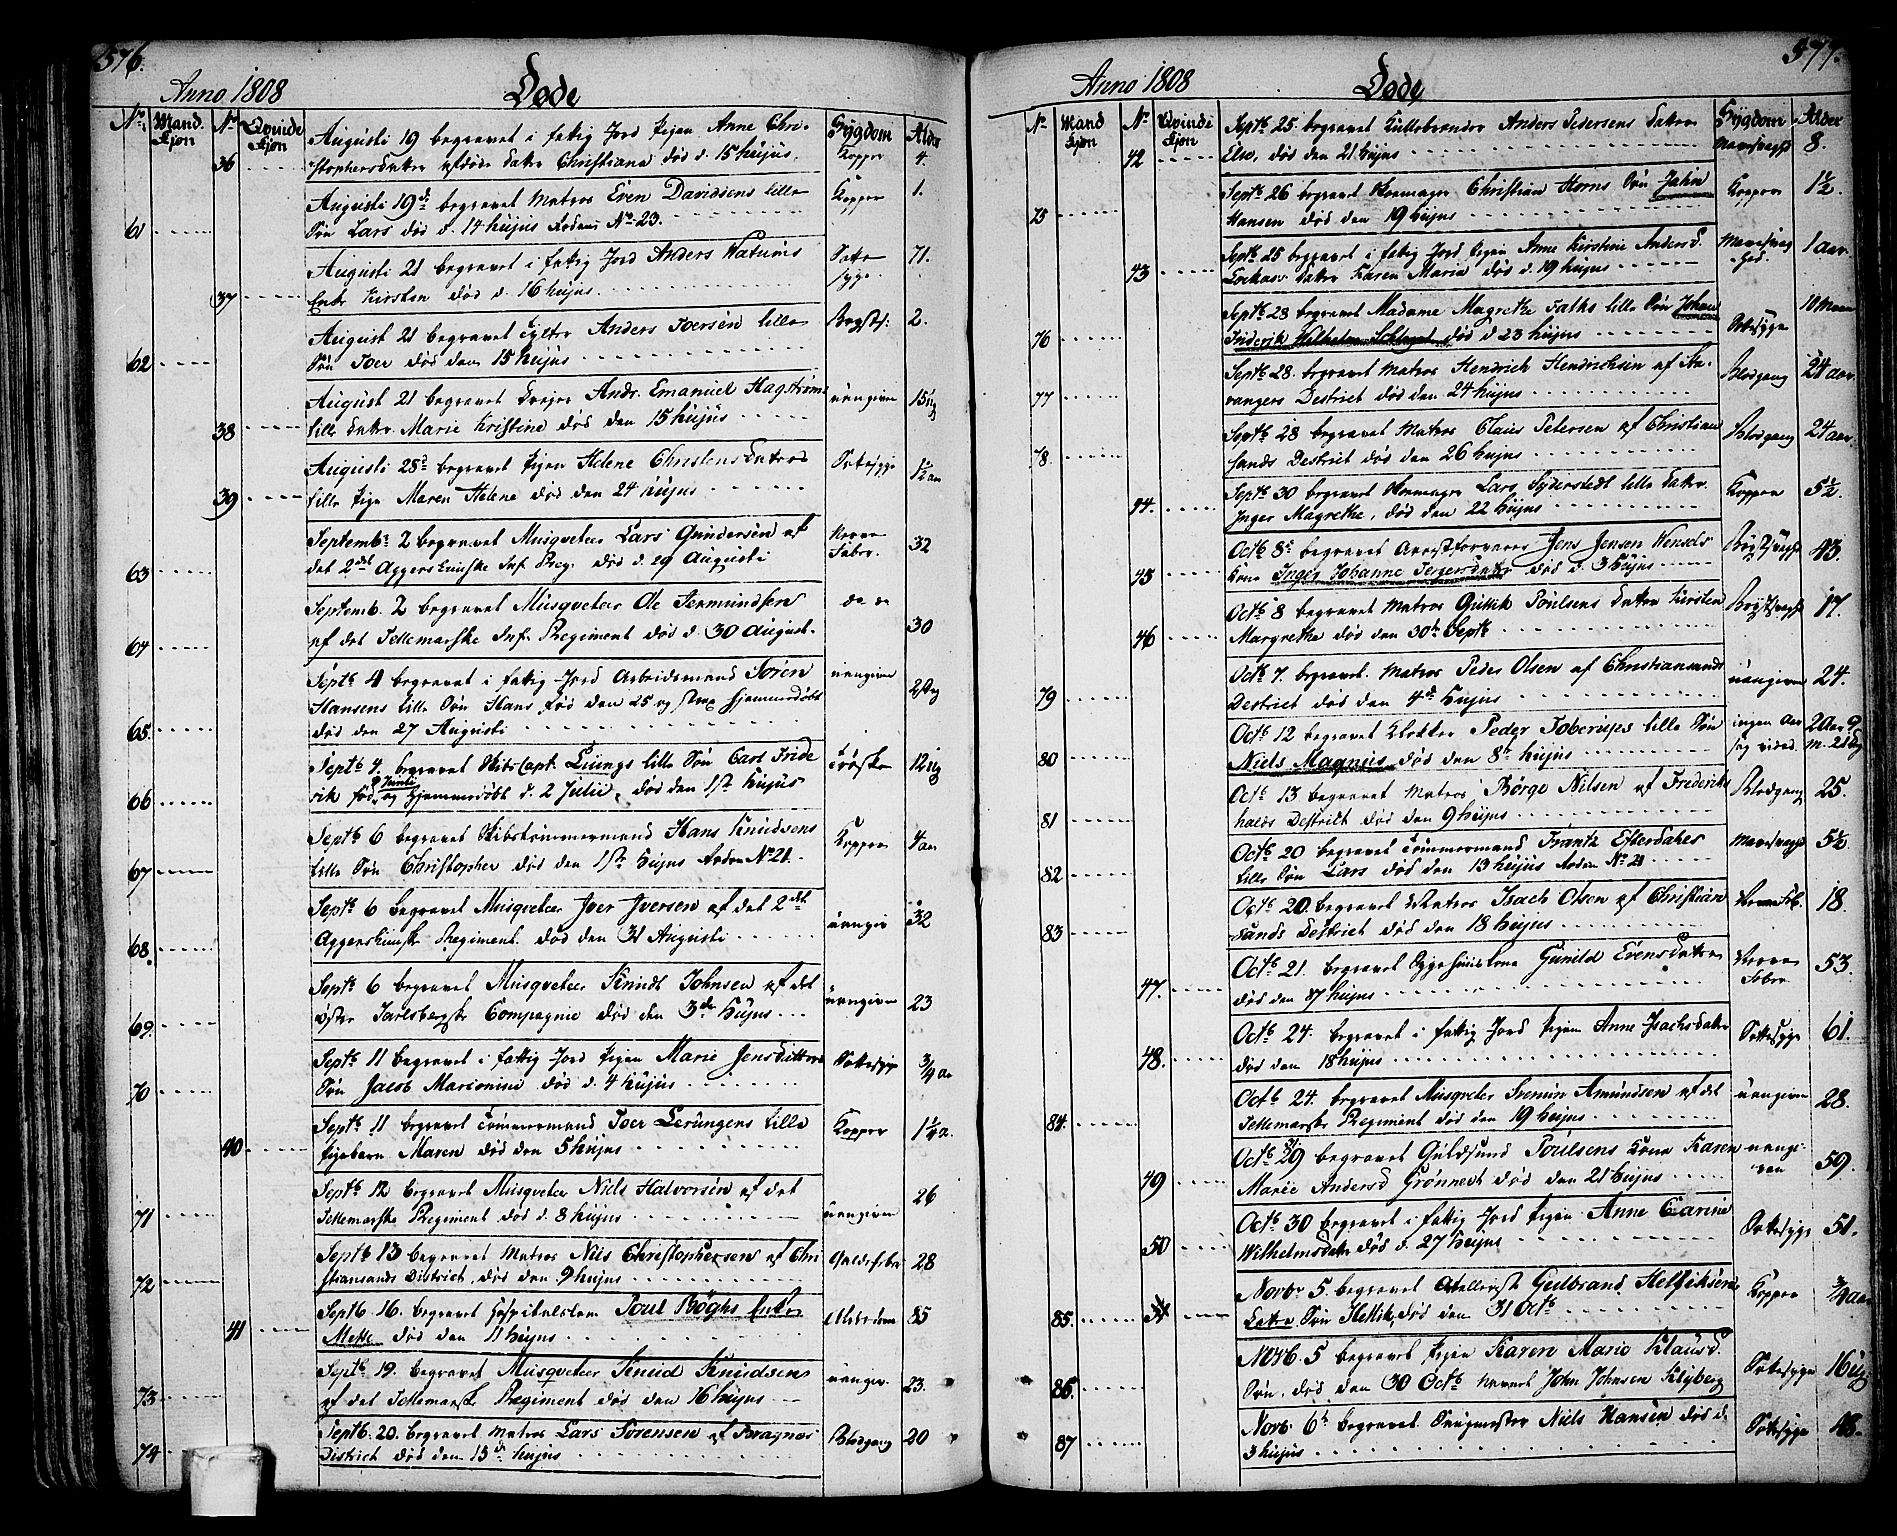 576.
Anno 1808 Døde
No. Mand Kjøn No Qvinde Kjøn Sygdom Alder
36 Augusti 19 begravet i fattig Jord Pigen Anne Chri- Kopper 4.
stophersdatter Datter Christiane død d. 15 hujus.
61 Augusti 19de begravet Matros Even Davidsens lille Kopper 1.
Søn Lars død d. 14 hujus Roden No. 23.
37 Augusti 21 begravet i fattig Jord Anders Watums 71.
Enke Kirsten død d. 16 hujus.
62 August 21 begravet Anders Toersen lille Brysts: 2.
Søn Toer død den 15 hujus
38 August 21 begravet Andr. Emanuel Hagstrøms uangiven 15 ug
lille Datter Marie Kristine død den 15 hujus
39 Augusti 28de begravet Pigen Helene Christensdatters Sottesyge 1½ aar
lille Pige Maren Helene død den 24 hujus
63 Septembr 2 begravet Musqveteer Lars Gundersen af Nerve Feber. 32
det 2det Aggershuuske Inf. Reg. død d. 29 Augusti
64 Septemb. 2 begravet Musqveteer Ole Jermundsen do do 30
af det Tellemarske Inf. Regiment død d. 30 August.
65. Septb 4 begravet i fattig Jord Arbeidsmand Søren uangiven 2 Dg
Hansens lille Søn Hans fød den 25 og strax hjemmedøbt
død den 27 Augusti
66 Septb 4. begravet Skibs Capt. Liungs lille Søn Carl Fride Trøske 12 ug
rik fød og Hjemmedøbt d. 2 Julii, død den 1ste hujus
67 Septb 6 begravet Skibstømmermand Hans Knudsens Kopper 4 aar
lille Søn Christopher død den 1ste hujus Roden No 21.
68. Septb 6 begravet Musqveteer Iver Iversen af det 2det uangiv 32
Aggershuuske Regiment. død den 31 Augusti
69. Septb 6 begravet Musqveteer Knudt Johnsen af det uangiven 23
øster Jarlsbergske Compagnie død den 3de hujus
70 Septb 11 begravet i fattig Jord Pigen Marie Jensdatters Sottesyge ¾ aar
Søn Jacob død d. 4 hujus
40 Septb 11 begravet Tømmermand Toer Lerungens lille Kopper 1¼ a.
Pigebarn Maren død den 5 hujus
71 Septb 12 begravet Musqveteer Niels Halvorsen af det uangiven 26
Tellemarske Regiment død d. 8 hujus
72 Septb 13 begravet Matros Nils Christophersen af Chri Galdefeber 28
stiansands District, død den 9 hujus
41 Septb 16. begravet Hospitalslem Poul Bøghs Enke Alderdom 85
Mette død den 11 hujus
73 Septb 19. begravet Musqveteer Knud Knudsens uangiv. 23.
af det Tellemarske Regiment død den 16 hujus
74 Septb. 20. begravet Matros Lars Sørensen af Bragnes Blodgang 20
District død den 13de hujus
577.
Anno 1808 Døde
No Mand Kjøn No. Qvinde Kjøn Sygdom Alder
42 Septb 25. begravet Anders Pedersens Datter 8.
Else, død den 21 hujus
75 Septb 26 begravet Skomager Christian Horns Søn John Kopper 1½.
Hansen død den 19 hujus
43 Septb 25 begravet i fattig Jord Pigen Anne Kirstine Anders D. 1 aar.
Datter Karen Maria død d. 19 hujus
76 Septb 28 begravet Madame Magrethe Falks lille Søn Johan Sottesyge
Friderik Wilhelm død d 23 hujus
77 Septb 28. begravet Matros Hendrich Hendrichsen af Sta- Blodgang 24 aar.
vangers District død den 24 hujus
78. Septb 28 begravet Matros Claus Petersen af Christian Blodgang 24 aar.
sands District død den 26 hujus
44. Septb 30 begravet Skomager Lars Syderstedt lille Datter Kopper 5½.
Inger Magrethe, død den 22 hujus
45 Octb 8de begravet Arrestforvarer Jens Jensen Wensels Brystsyge 43.
Kone Inger Johanne død d. 3 hujus
46 Octb 8 begravet Matros Gullik Poulsens Datter Kirsten Brystsyge 17.
Margrethe død den 30te Septb
79 Octb 7. begravet Matros Peder Olsen af Christiansands uangiven 24.
District død den 4de hujus
80 Octb 12 begravet Klokker Peder Toberups lille Søn 2 Aar 9
Niels Magnus død den 8de hujus m. 21 Dg
81 Octb 13 begravet Matros Børge Nilsen af Frederiks Blodgang 25.
halds District død den 9 hujus
82 Octb 20 begravet Tømmermand Frantz Efterdahls 5½.
lille Søn Lars død den 13 hujus Roden No 21
83 Octb 20. begravet Matros Isach Olsen af Christian Nerve Feb. 18.
sands District død den 18 hujus
47. Octb 21. begravet Gunild Evensdatter Nerve Feber 53.
død den 17 hujus
48. Octb 24. begravet i fattig Jord Pigen Anne Isachsdatter Sottesyge 61.
død den 18 hujus
84. Octb 24. begravet Musqveter Svenun Amundsen af det uangiven 28.
Tellemarske Regiment død den 19 hujus
49 Octb 29 begravet Guldsund Poulsens Kone Karen uangi- ven 59.
Marie Andersd Grønnert død den 21 hujus
50 Octb 30 begravet i fattig Jord Pigen Anne Carine Sottesyge 51.
Wilhelmsdatter død d. 27 hujus
85. Novbr 5. begravet Gulbrand Helliksens Kopper ¾ aar
Søn Hellik, død den 31 Octb
86. Novb. 5 begravet Pigen Karen Marie Klausd. Sottesyge 16 ug
Søn, død den 30 Octb navnet John Johnsen Klyberg
87 Novb. 6te begravet Niels Hansen død d. Sottesyge 48.
3 hujus